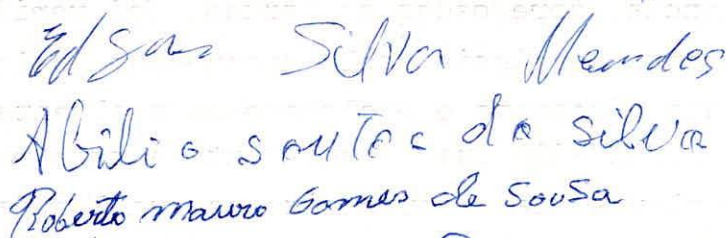 Edson Silva Mendes
Abilio santos da silva
Roberto mauro Gomes de Sousa